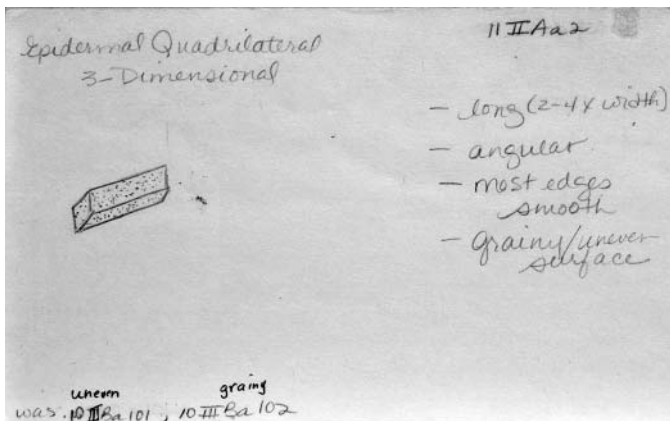 Epidermal Quadrilateral
3-Dimensional
11 II Aa2
- long (2-4x width)
- angular
- most edges
smooth
- grainy/uneven
surface
uneven grainy
was 10 III Ba 101, 10 III Ba 102